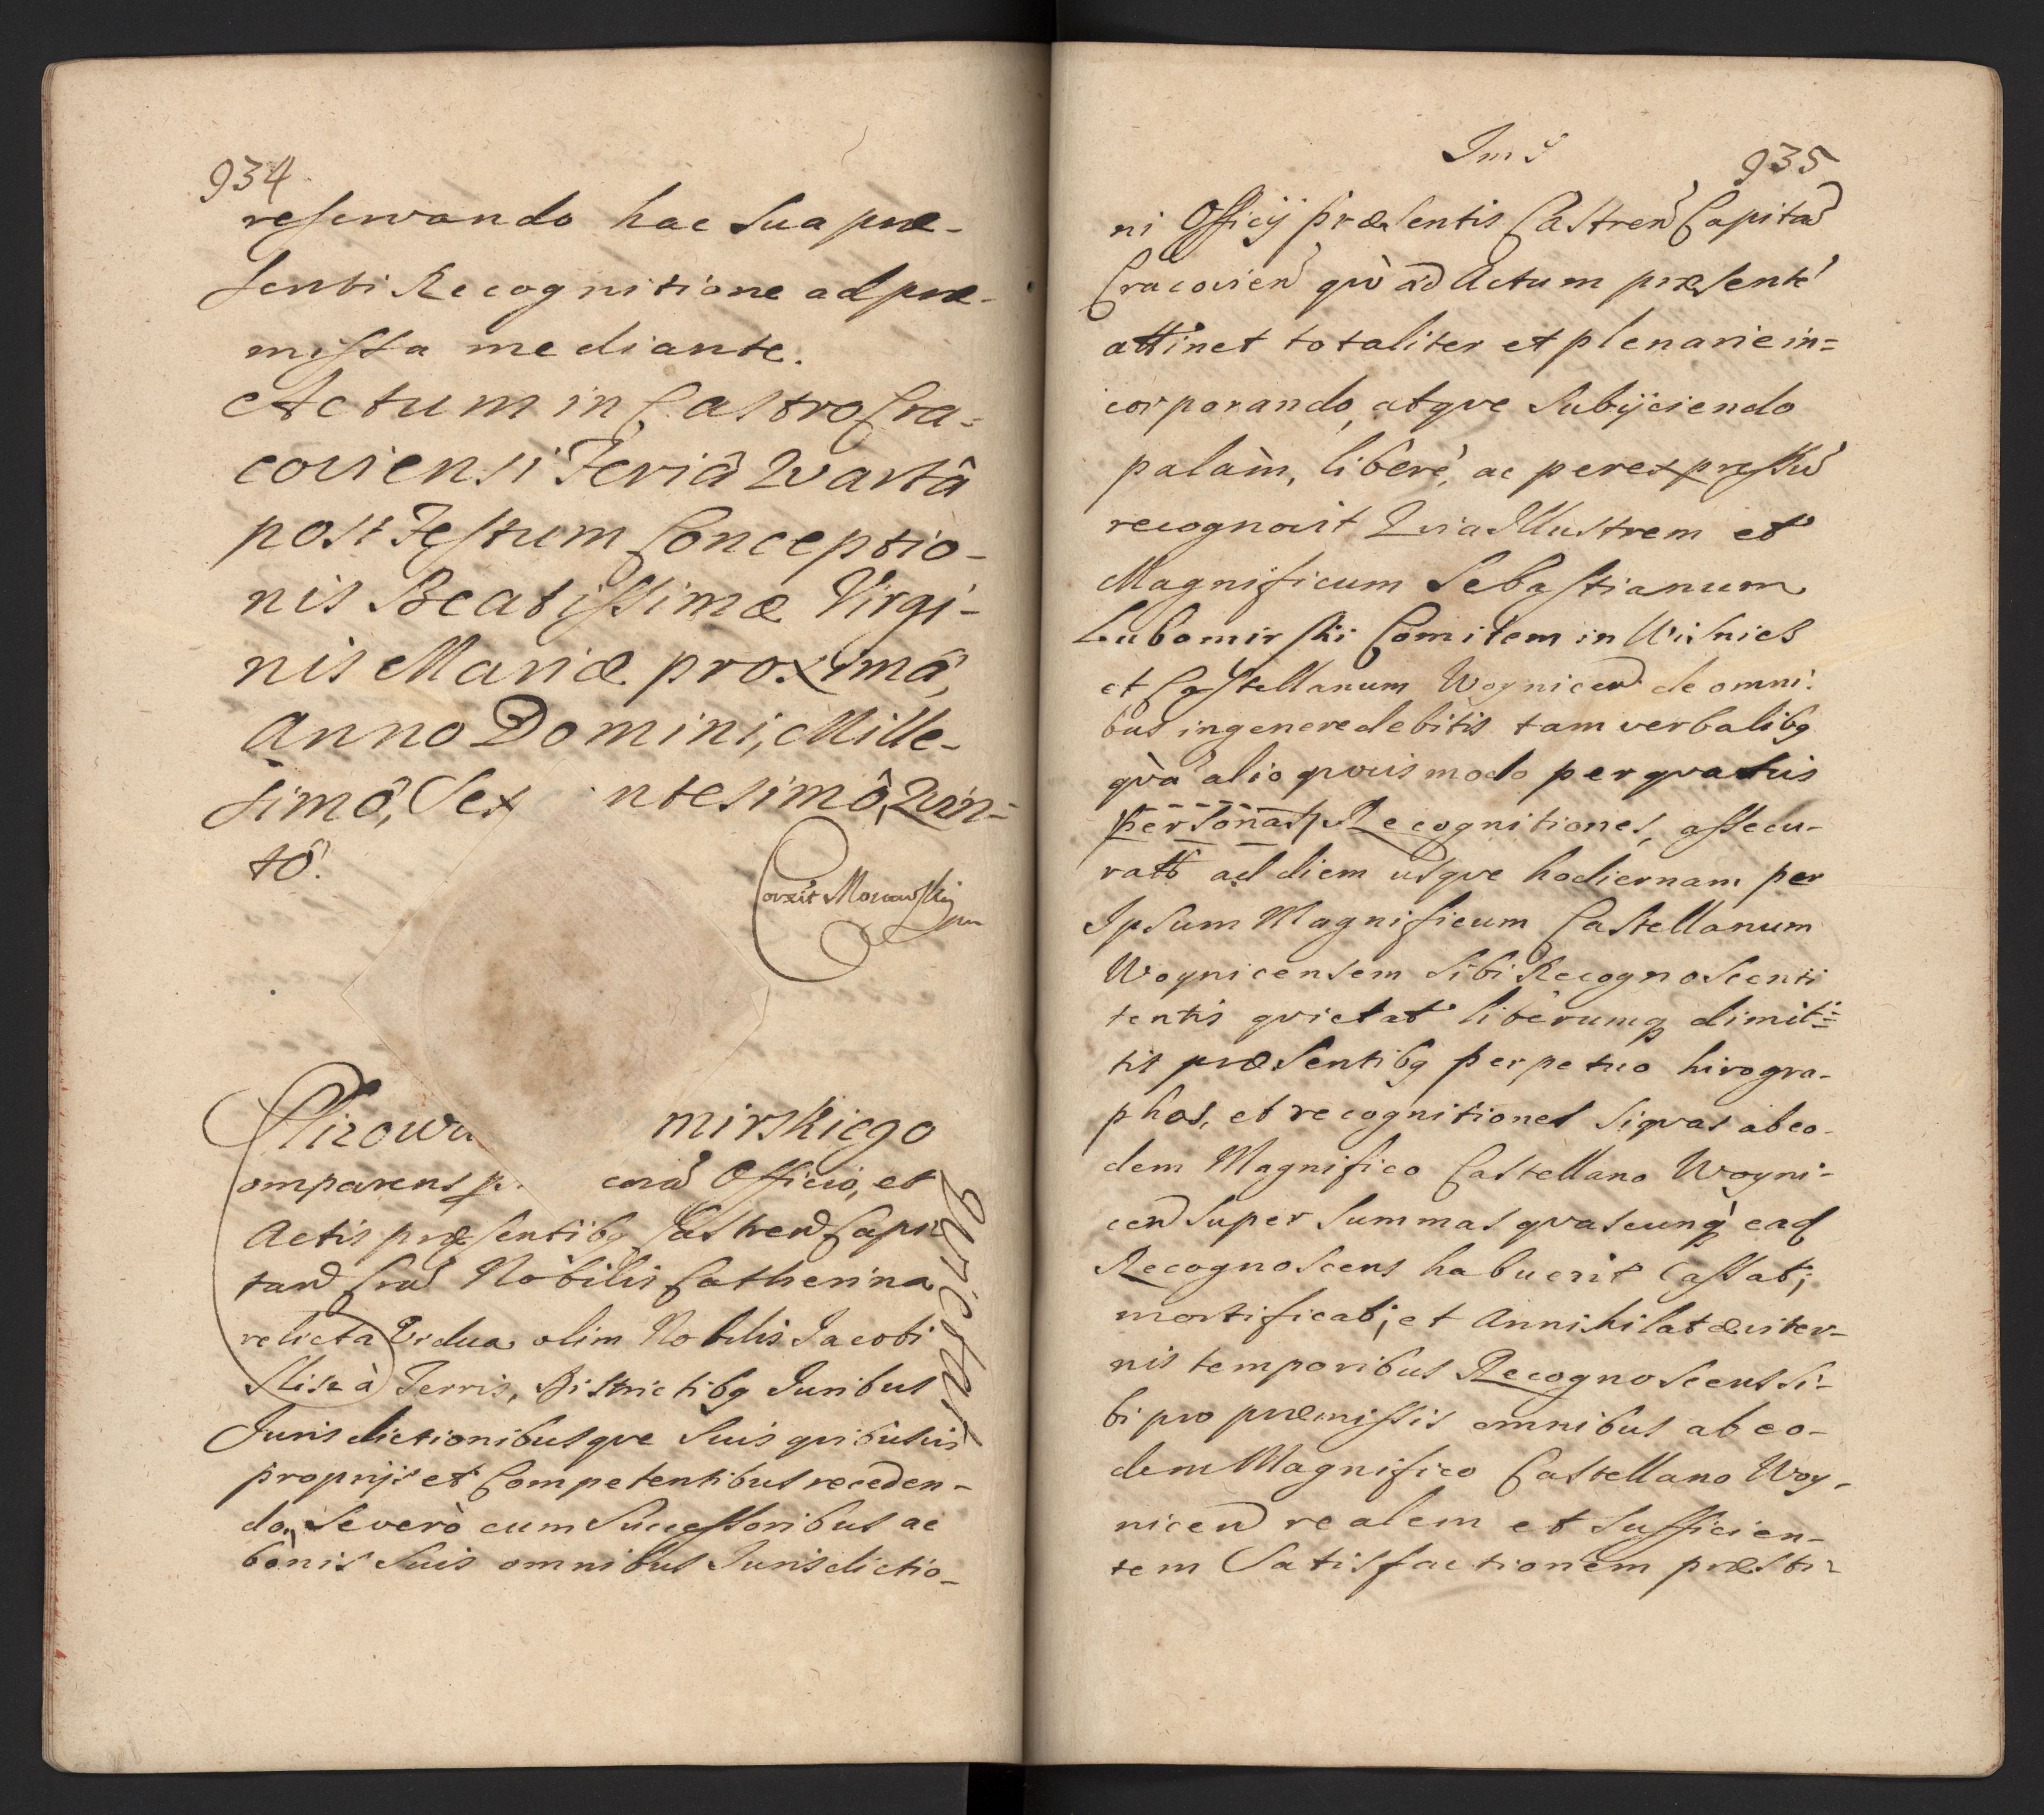 934
reservando hac Sua præ-
senti Recognitione ad præ-
missa mediante.
Actum in Castro Cra-
coviensi Feriâ Quartâ
post Festum Conceptio-
nis Beatissimæ Virgi-
nis Mariæ proximâ,
Anno Domini, Mille-
simô, Sex ntesimô, Quin-
tô.
Corrxit Morawski
mpr
Slizowa mirskiego
Comparens p. coră Officio, et
Actis præsentibq Castren Capi-
tan Cra Nobilis Catherina
relicta Vidua olim Nobilis Jacobi
Sliz à Terris, Districtibq Juribus
Jurisdictionibusque Suis quibusvis
proprijs et Competentibus receden-
do, Se verò cum Successoribus ac
bonis Suis omnibus Jurisdictio-
Qvietat
935
ni Officij præsentis Castren Capitan
Cracovien qvò ad Actum præsente
attinet totaliter et plenarie in=
corporando, atqve Subijciendo
palàm, liberè, ac per expressu
recognovit Quia Illustrem et
Magnificum Sebastianum
Lubomirski Comitem in Wisnics
et Castellanum Woynicen de omni-
bus in genere debitis tam verbalibq
qvà alio qvovis modo per qvatuis
personas, Recognitiones, assecu-
rat ad diem usqve hodiernam per
Ipsum Magnificum Castellanum
Woynicensem Sibi Recognoscenti
tentis qvietat liberumq dimit=
tit præsentibq perpetuo hirogra-
phos, et recognitiones Siqvas ab eo-
dem Magnifico Castellano Woyni-
cen Super Summas qvascunq ead
Recognoscens habuerit Cassat,
mortificat, et Annihilat æviter-
nis temporibus Recognoscens Si-
bi pro præmissis omnibus ab eo-
dem Magnifico Castellano Woy-
nicen realem et Sufficien-
tem Satisfactionem præsti-